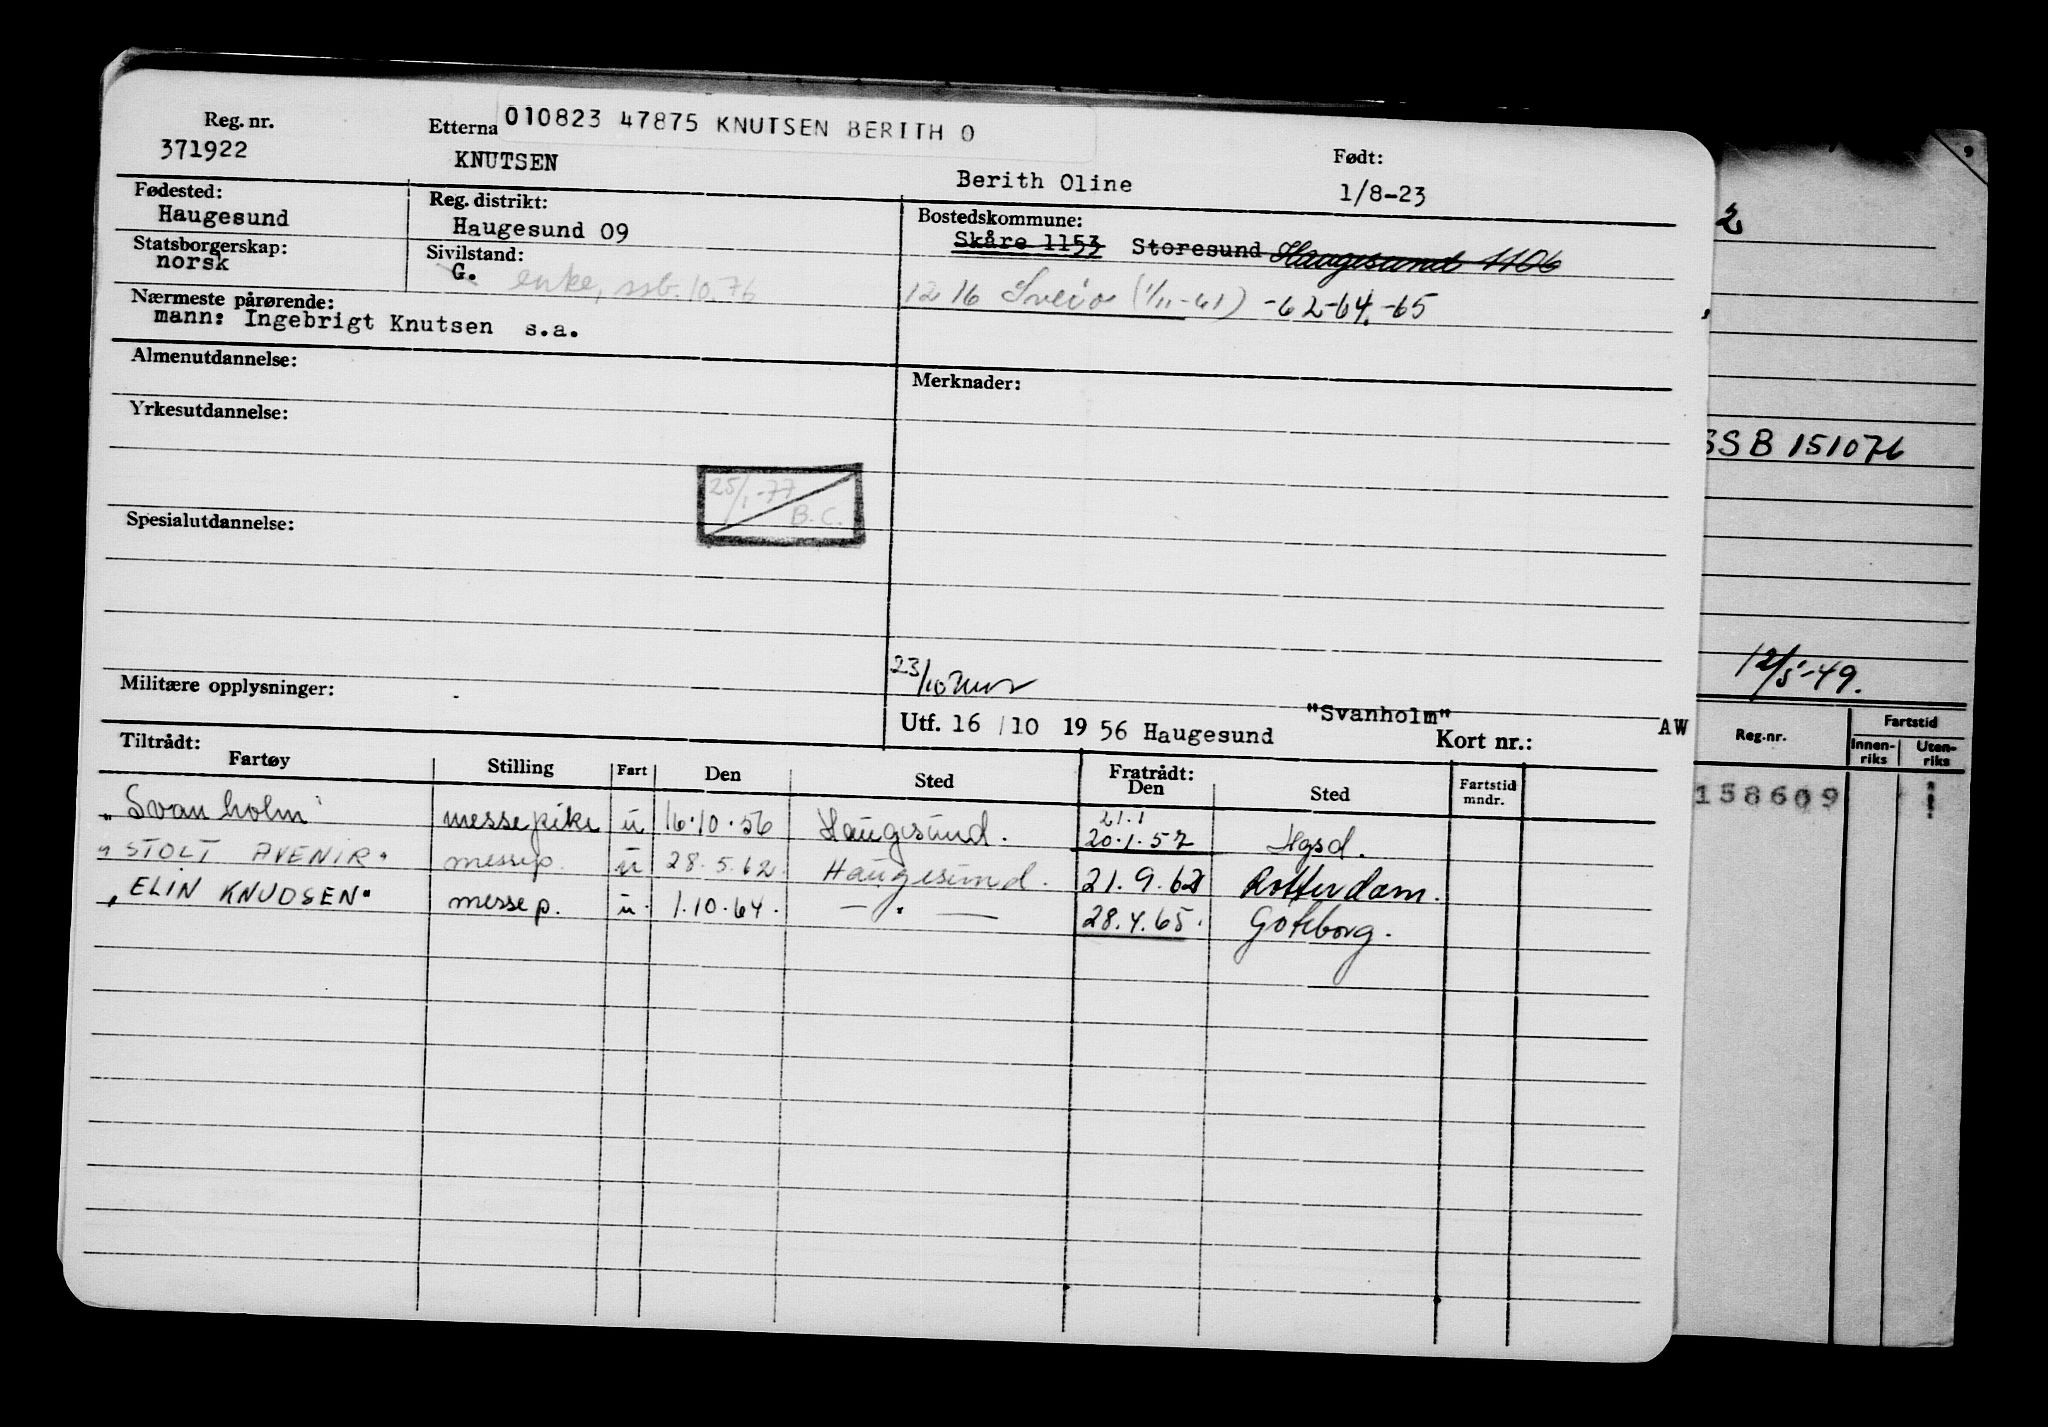 Reg. nr.
371922
Etterna 010823 47875 KNUTSEN BERITH O
KNUTSEN Berith Oline
Født:
1/8-23
Fødested:
Haugesund
Reg. distrikt:
Haugesund 09
Bostedskommune:
Skåre 1153 Storesund Haugesund 1106
1216 Sveio (1/11-61) -62-64.-65
Statsborgerskap:
norsk
Sivilstand:
G. enke, ssb. 10.76
Nærmeste pårørende:
mann: Ingebrigt Knutsen s.a.
Almenutdannelse:
Merknader:
Yrkesutdannelse:
25/1-77
B.C.
Spesialutdannelse:
23/10
Militære opplysninger:
Utf. 16/10 1956 Haugesund "Svanholm" Kort nr.: AW
Tiltrådt:
Fartøy Stilling Fart Den Sted
Fratrådt:
Den Sted Fartstid mndr.
"Svanholm" messepike u 16.10.56 Haugesund. 21.1 20.1.57 Hgsd.
"STOLT AVENIR" messep. u 28.5.62. Haugesund. 21.9.62 Rotterdam.
"ELIN KNUDSEN" messep. u. 1.10.64. — " — 28.4.65. Goteborg.
2
SSB 151076
12/5-49.
Reg.nr. Fartstid
Innen-riks Uten-riks
158609